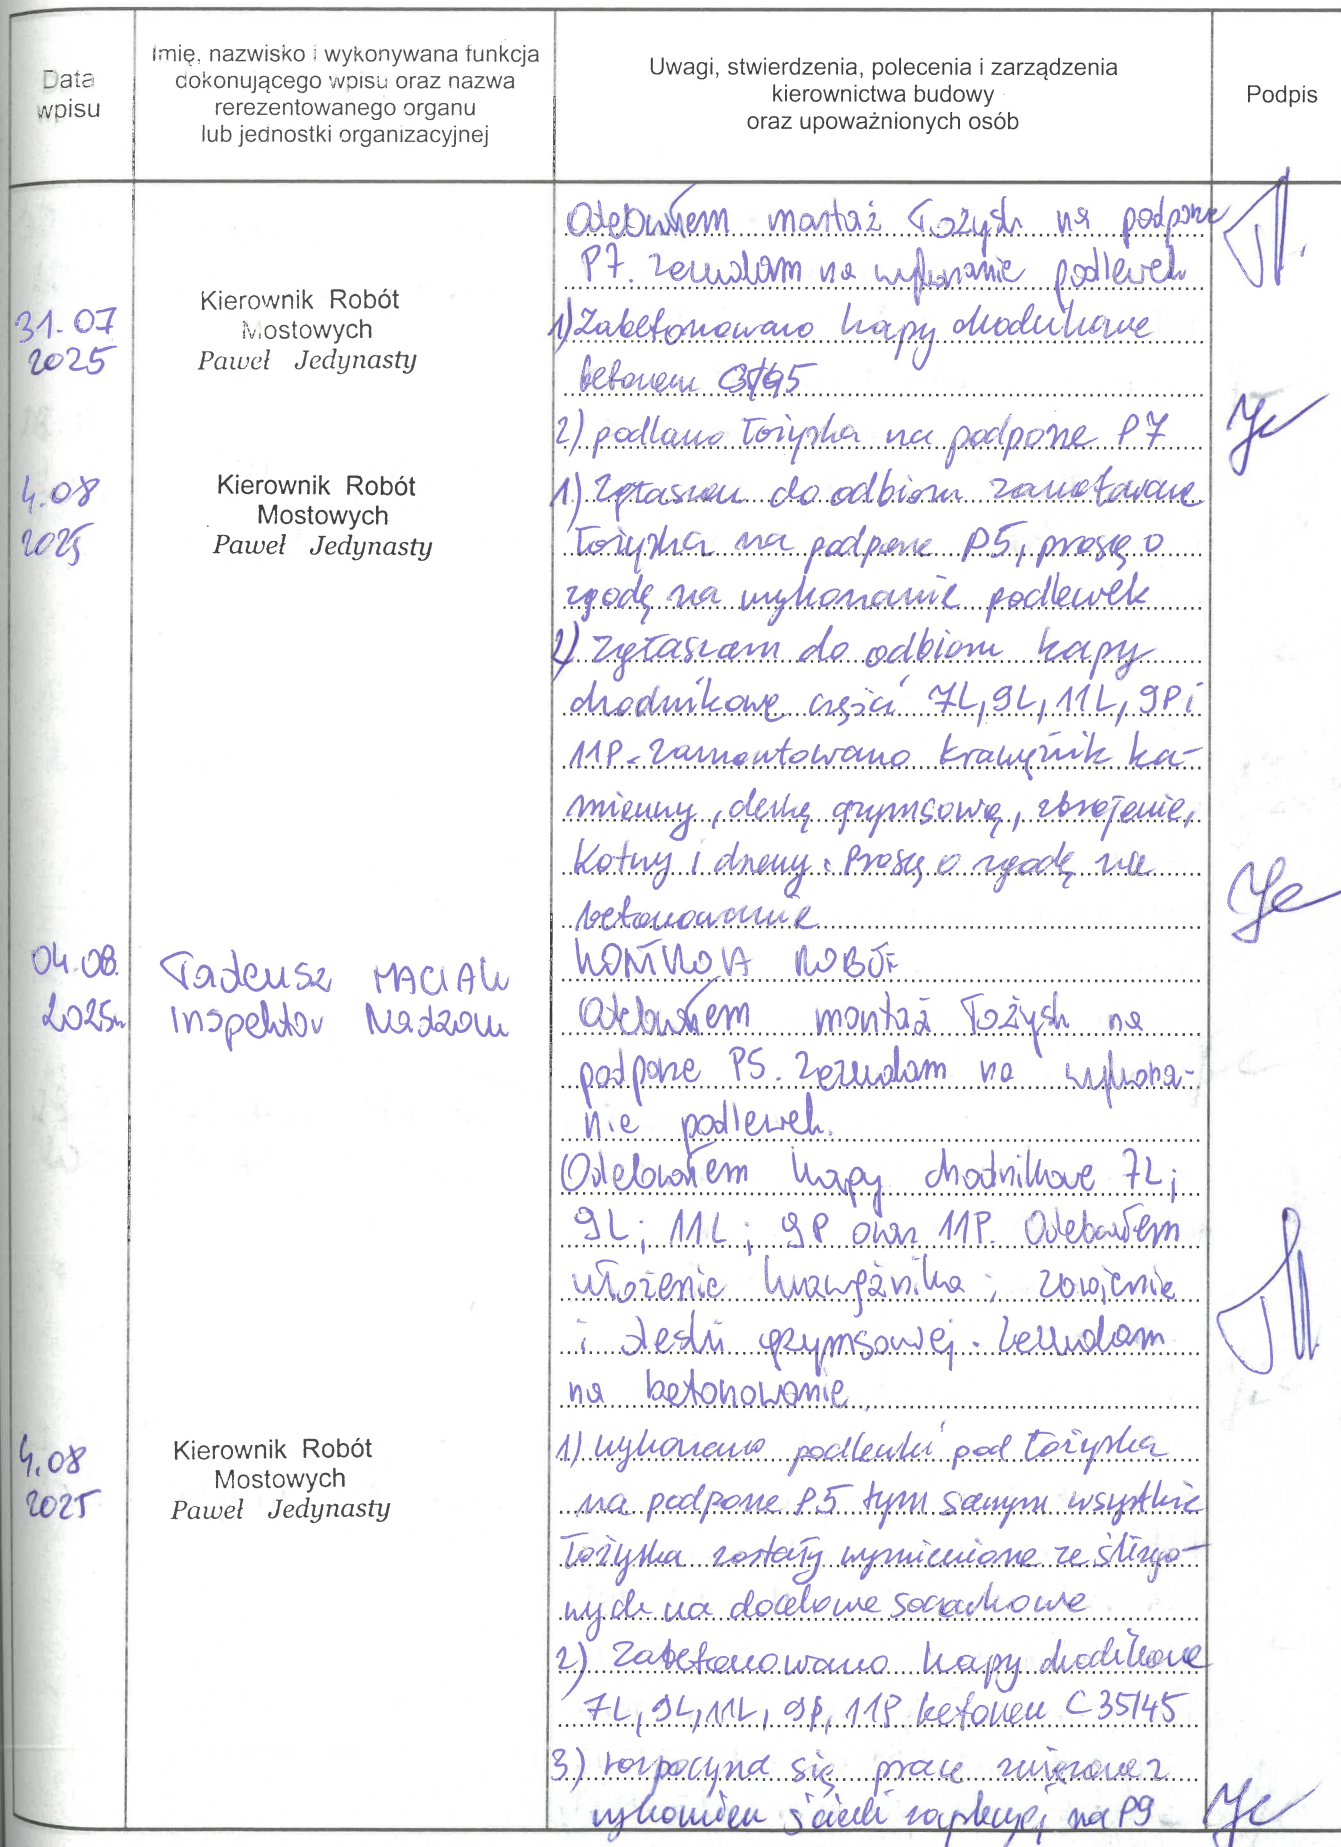 Data
wpisu
Imię, nazwisko i wykonywana funkcja
dokonującego wpisu oraz nazwa
rerezentowanego organu
lub jednostki organizacyjnej
Uwagi, stwierdzenia, polecenia i zarządzenia
kierownictwa budowy
oraz upoważnionych osób
Podpis
Odebrałem montaż łożysk na podporze
P7. Zezwalam na wykonanie podlewek
31.07
2025
Kierownik Robót
Mostowych
Paweł Jedynasty
1) Zabetonowano kapy chodnikowe
betonem C35/45
2) podlano łożyska na podporze P7
4.08
2025
Kierownik Robót
Mostowych
Paweł Jedynasty
1) Zgłaszam do odbioru
łożyska na podporze P5, proszę o
zgodę na wykonanie podlewek
2) Zgłaszam do odbioru kapy
chodnikowe części 7L, 9L, 11L, 9P i
11P. Zamontowano krawężnik ka-
mienny, deskę gzymsową, zbrojenie,
kotwy i dreny. Proszę o zgodę na
betonowanie
04.08.
2025r
Tadeusz MACIAK
Inspektor Nadzoru
KONTROLA ROBÓT
Odebrałem montaż łożysk na
podporze P5. Zezwalam na wykona-
nie podlewek.
Odebrałem kapy chodnikowe 7L;
9L; 11L; 9P oraz 11P. Odebrałem
ułożenie krawężnika; zbrojenie
i deski gzymsowej. Zezwalam
na betonowanie.
4.08
2025
Kierownik Robót
Mostowych
Paweł Jedynasty
1) wykonano podlewki pod łożyska
na podporze P5 tym samym wszystkie
łożyska zostały wymienione ze ślizgo-
wych na docelowe soczewkowe
2) Zabetonowano kapy chodnikowe
7L, 9L, 11L, 9P, 11P betonem C35/45
3) rozpoczyna się prace związane z
wykonaniem ścianki zaplecznej na P9